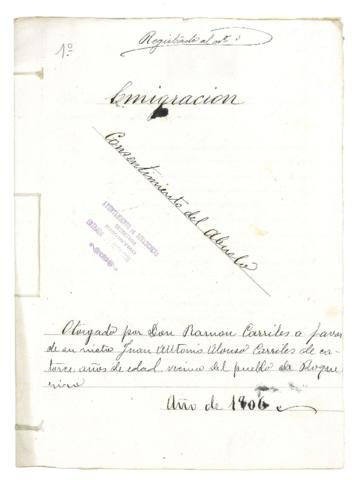 Registrado al nto 3
1º
Emigracion
Consentimiento del Abuelo
AYUNTAMIENTO DE
Otorgado por Don Ramon Carriles a favor
de su nieto Juan Antonio Alonso Carriles de ca-
torce años de edad vecino del pueblo de Roque
Año de 1906